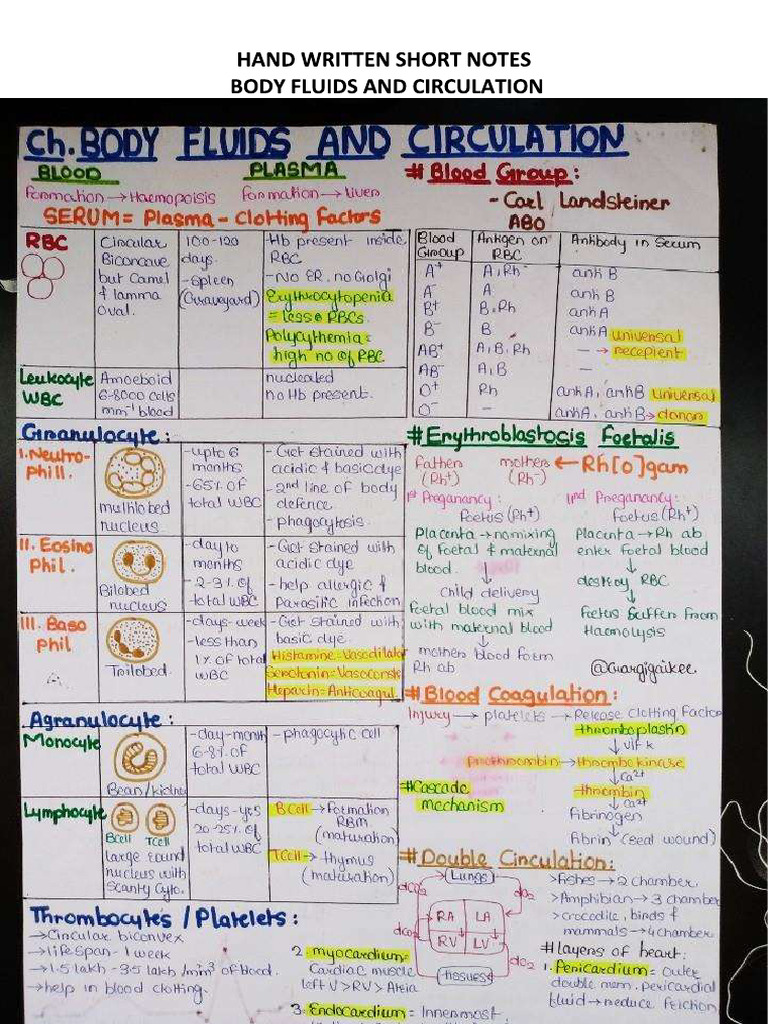 HAND WRITTEN SHORT NOTES
BODY FLUIDS AND CIRCULATION
Ch. BODY FLUIDS AND CIRCULATION
BLOOD
formation → Haemopoisis
PLASMA
formation → liver
SERUM = Plasma - Clotting Factors
RBC
Circular
Biconcave
but Camel
& lamma
Oval.
100-120
days.
-Spleen
(Graveyard)
-Hb present inside
RBC
-No ER, no Golgi
Erythrocytopenia
= less RBCs.
Polycythemia =
high no of RBC
Leukocyte
WBC
Amoeboid
6-8000 cells
mm⁻³ blood
nucleated
no Hb present.
Granulocyte:
I. Neutro-
phill.
multilobed
nucleus
-upto 6
months
-65% of
total WBC
-Get stained with
acidic & basic dye
-2nd line of body
defence
-phagocytosis
II. Eosino
phil.
Bilobed
nucleus
-day to
months
-2-3% of
total WBC
-Get stained with
acidic dye
-help allergic &
Parasitic infection
III. Baso
phil
Trilobed.
-days-week
-less than
1% of total
WBC
-Get stained with
basic dye.
Histamine=Vasodilator
Serotonin=Vasoconst
Heparin=Anticoagul.
Agranulocyte:
Monocyte
Bean/kidney
-day-month
6-8% of
total WBC
-phagocytic cell
Lymphocyte
BCell TCell
large round
nucleus with
Scanty Cyto.
-days-yrs
20-25% of
total WBC
BCell → Formation
RBM
(maturation)
TCell → thymus
(maturation)
Thrombocytes / Platelets:
→Circular biconvex
→lifespan-1 week
→1.5 lakh - 3.5 lakh /mm³ of blood.
→help in blood clotting.
# Blood Group:
- Carl Landsteiner
ABO
Blood Group Antigen on RBC Antibody in Serum
A⁺ A, Rh anti B
A⁻ A anti B
B⁺ B, Rh anti A
B⁻ B anti A universal
AB⁺ A, B, Rh — → recepient
AB⁻ A, B —
O⁺ Rh anti A, anti B universal
O⁻ - anti A, anti B → donor
# Erythroblastocis Foetalis
father (Rh⁺) mother (Rh⁻) ← Rh[o]gam
Ist Preganancy:
foetus (Rh⁺)
Placenta → no mixing
of foetal & maternal
blood.
child delivery
foetal blood mix
with maternal blood
mothers blood form
Rh ab
IInd Preganancy:
foetus (Rh⁺)
Placenta → Rh ab
enter foetal blood
destroy RBC
Foetus suffer from
Haemolysis
@Guargigaikee
# Blood Coagulation:
Injury → platelets → Release clotting factor
thromboplastin
vit k
prothrombin → thrombokinase
Ca²⁺
thrombin
Ca²⁺
fibrinogen
fibrin (seal wound)
#Cascade
mechanism
# Double Circulation:
Lungs
dCO₂ dO₂
RA LA
RV LV
dCO₂ dO₂
tissues
>fishes → 2 chamber
>Amphibian → 3 chamber
>crocodile, birds &
mammals → 4 chamber
#layers of heart:
1. Pericardium = outer
double mem. pericardial
fluid → reduce friction
2. myocardium =
Cardiac muscle
left V > RV > Atria
3. Endocardium = Innermost,